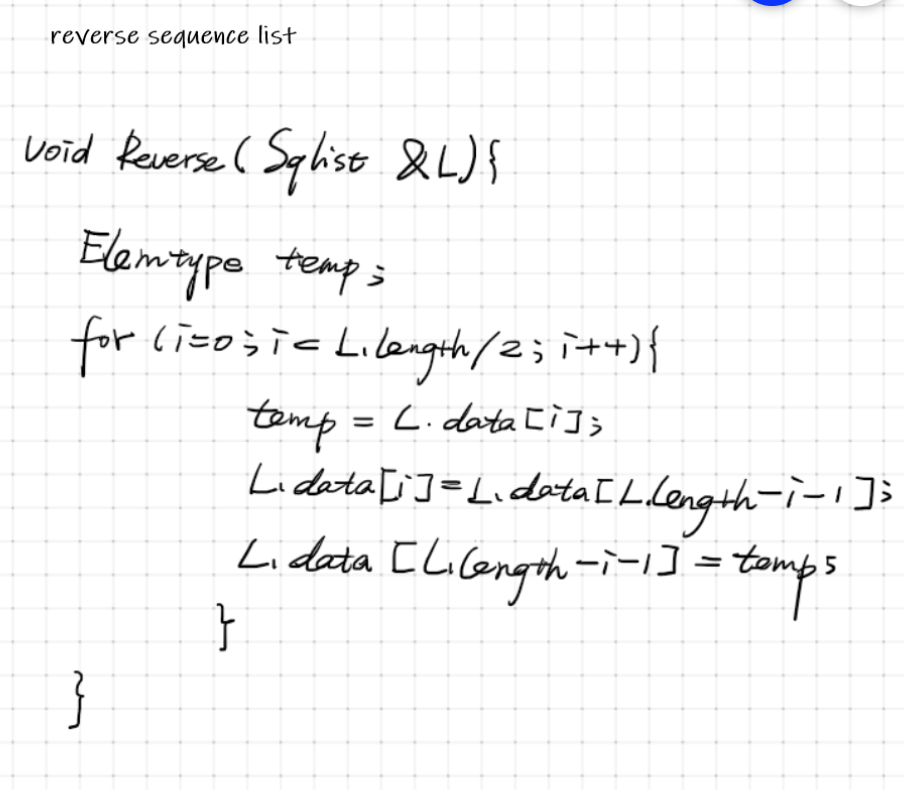 reverse sequence list
void Reverse(Sqlist &L){
Elemtype temp;
for (i=0;i< L.length/2; i++){
temp = L.data[i];
L.data[i]=L.data[L.length-i-1];
L.data[L.length-i-1] = temp;
}
}